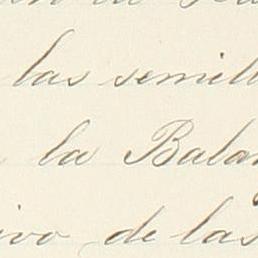 las semill
la Balan
ivo de las